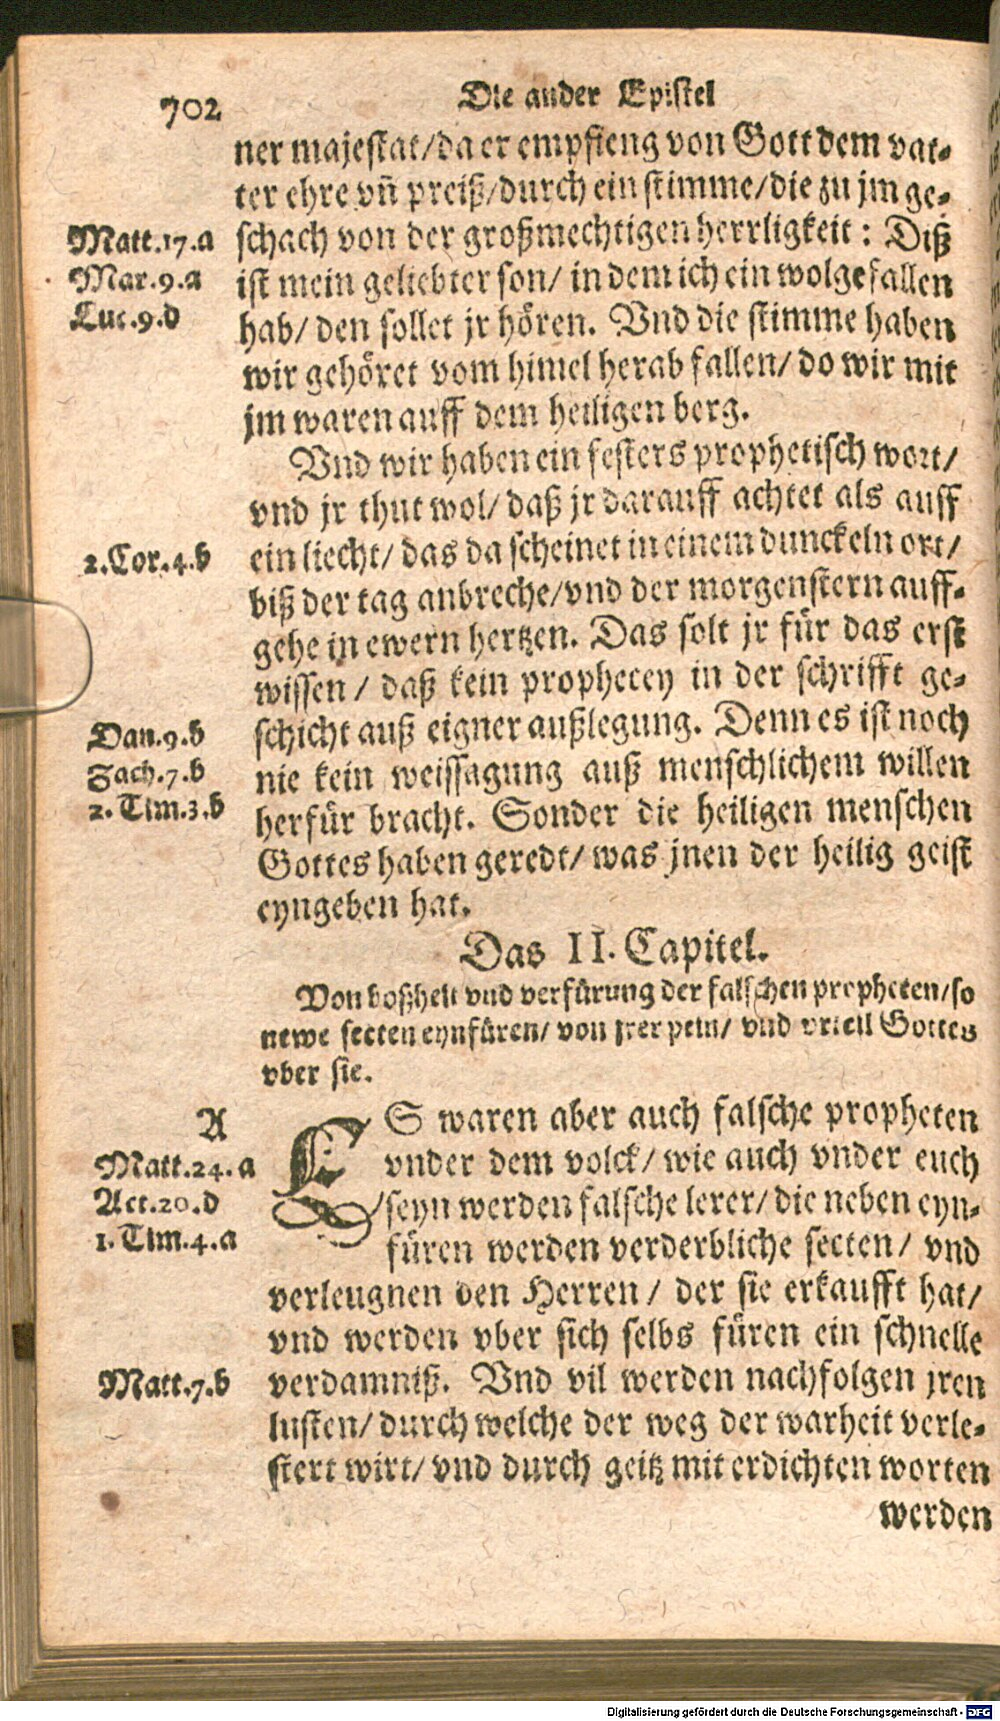 702
Die ander Epistel
ner majestat/da er empfieng von Gott dem vat-
ter ehre vñ preiß/durch ein stimme/die zu jm ge-
Matt.17.a
schach von der großmechtigen herrligkeit: Diß
Mar.9.a
ist mein geliebter son/ in dem ich ein wolgefallen
Luc.9.d
hab/ den sollet jr hören. Vnd die stimme haben
wir gehöret vom himel herab fallen/ do wir mit
jm waren auff dem heiligen berg.
Vnd wir haben ein festers prophetisch wort/
vnd jr thut wol/ daß jr darauff achtet als auff
2.Cor.4.b
ein liecht/ das da scheinet in einem dunckeln ort/
biß der tag anbreche/vnd der morgenstern auff-
gehe in ewern hertzen. Das solt jr für das erst
wissen / daß kein prophecey in der schrifft ge-
Dan.9.b
schicht auß eigner außlegung. Denn es ist noch
Sach.7.b
nie kein weissagung auß menschlichem willen
2.Tim.3.b
herfür bracht. Sonder die heiligen menschen
Gottes haben geredt/ was jnen der heilig geist
eyngeben hat.
Das II. Capitel.
Von boßheit vnd verfürung der falschen propheten/so
newe secten eynfüren/ von jrer pein/ vnd vrteil Gottes
vber sie.
A
ES waren aber auch falsche propheten
Matt.24.a
vnder dem volck/ wie auch vnder euch
Act.20.d
seyn werden falsche lerer/ die neben eyn-
1.Tim.4.a
füren werden verderbliche secten/ vnd
verleugnen den Herren / der sie erkaufft hat/
vnd werden vber sich selbs füren ein schnelle
Matt.7.b
verdamniß. Vnd vil werden nachfolgen jren
lusten/ durch welche der weg der warheit verle-
stert wirt/ vnd durch geitz mit erdichten worten
werden
Digitalisierung gefördert durch die Deutsche Forschungsgemeinschaft - DFG